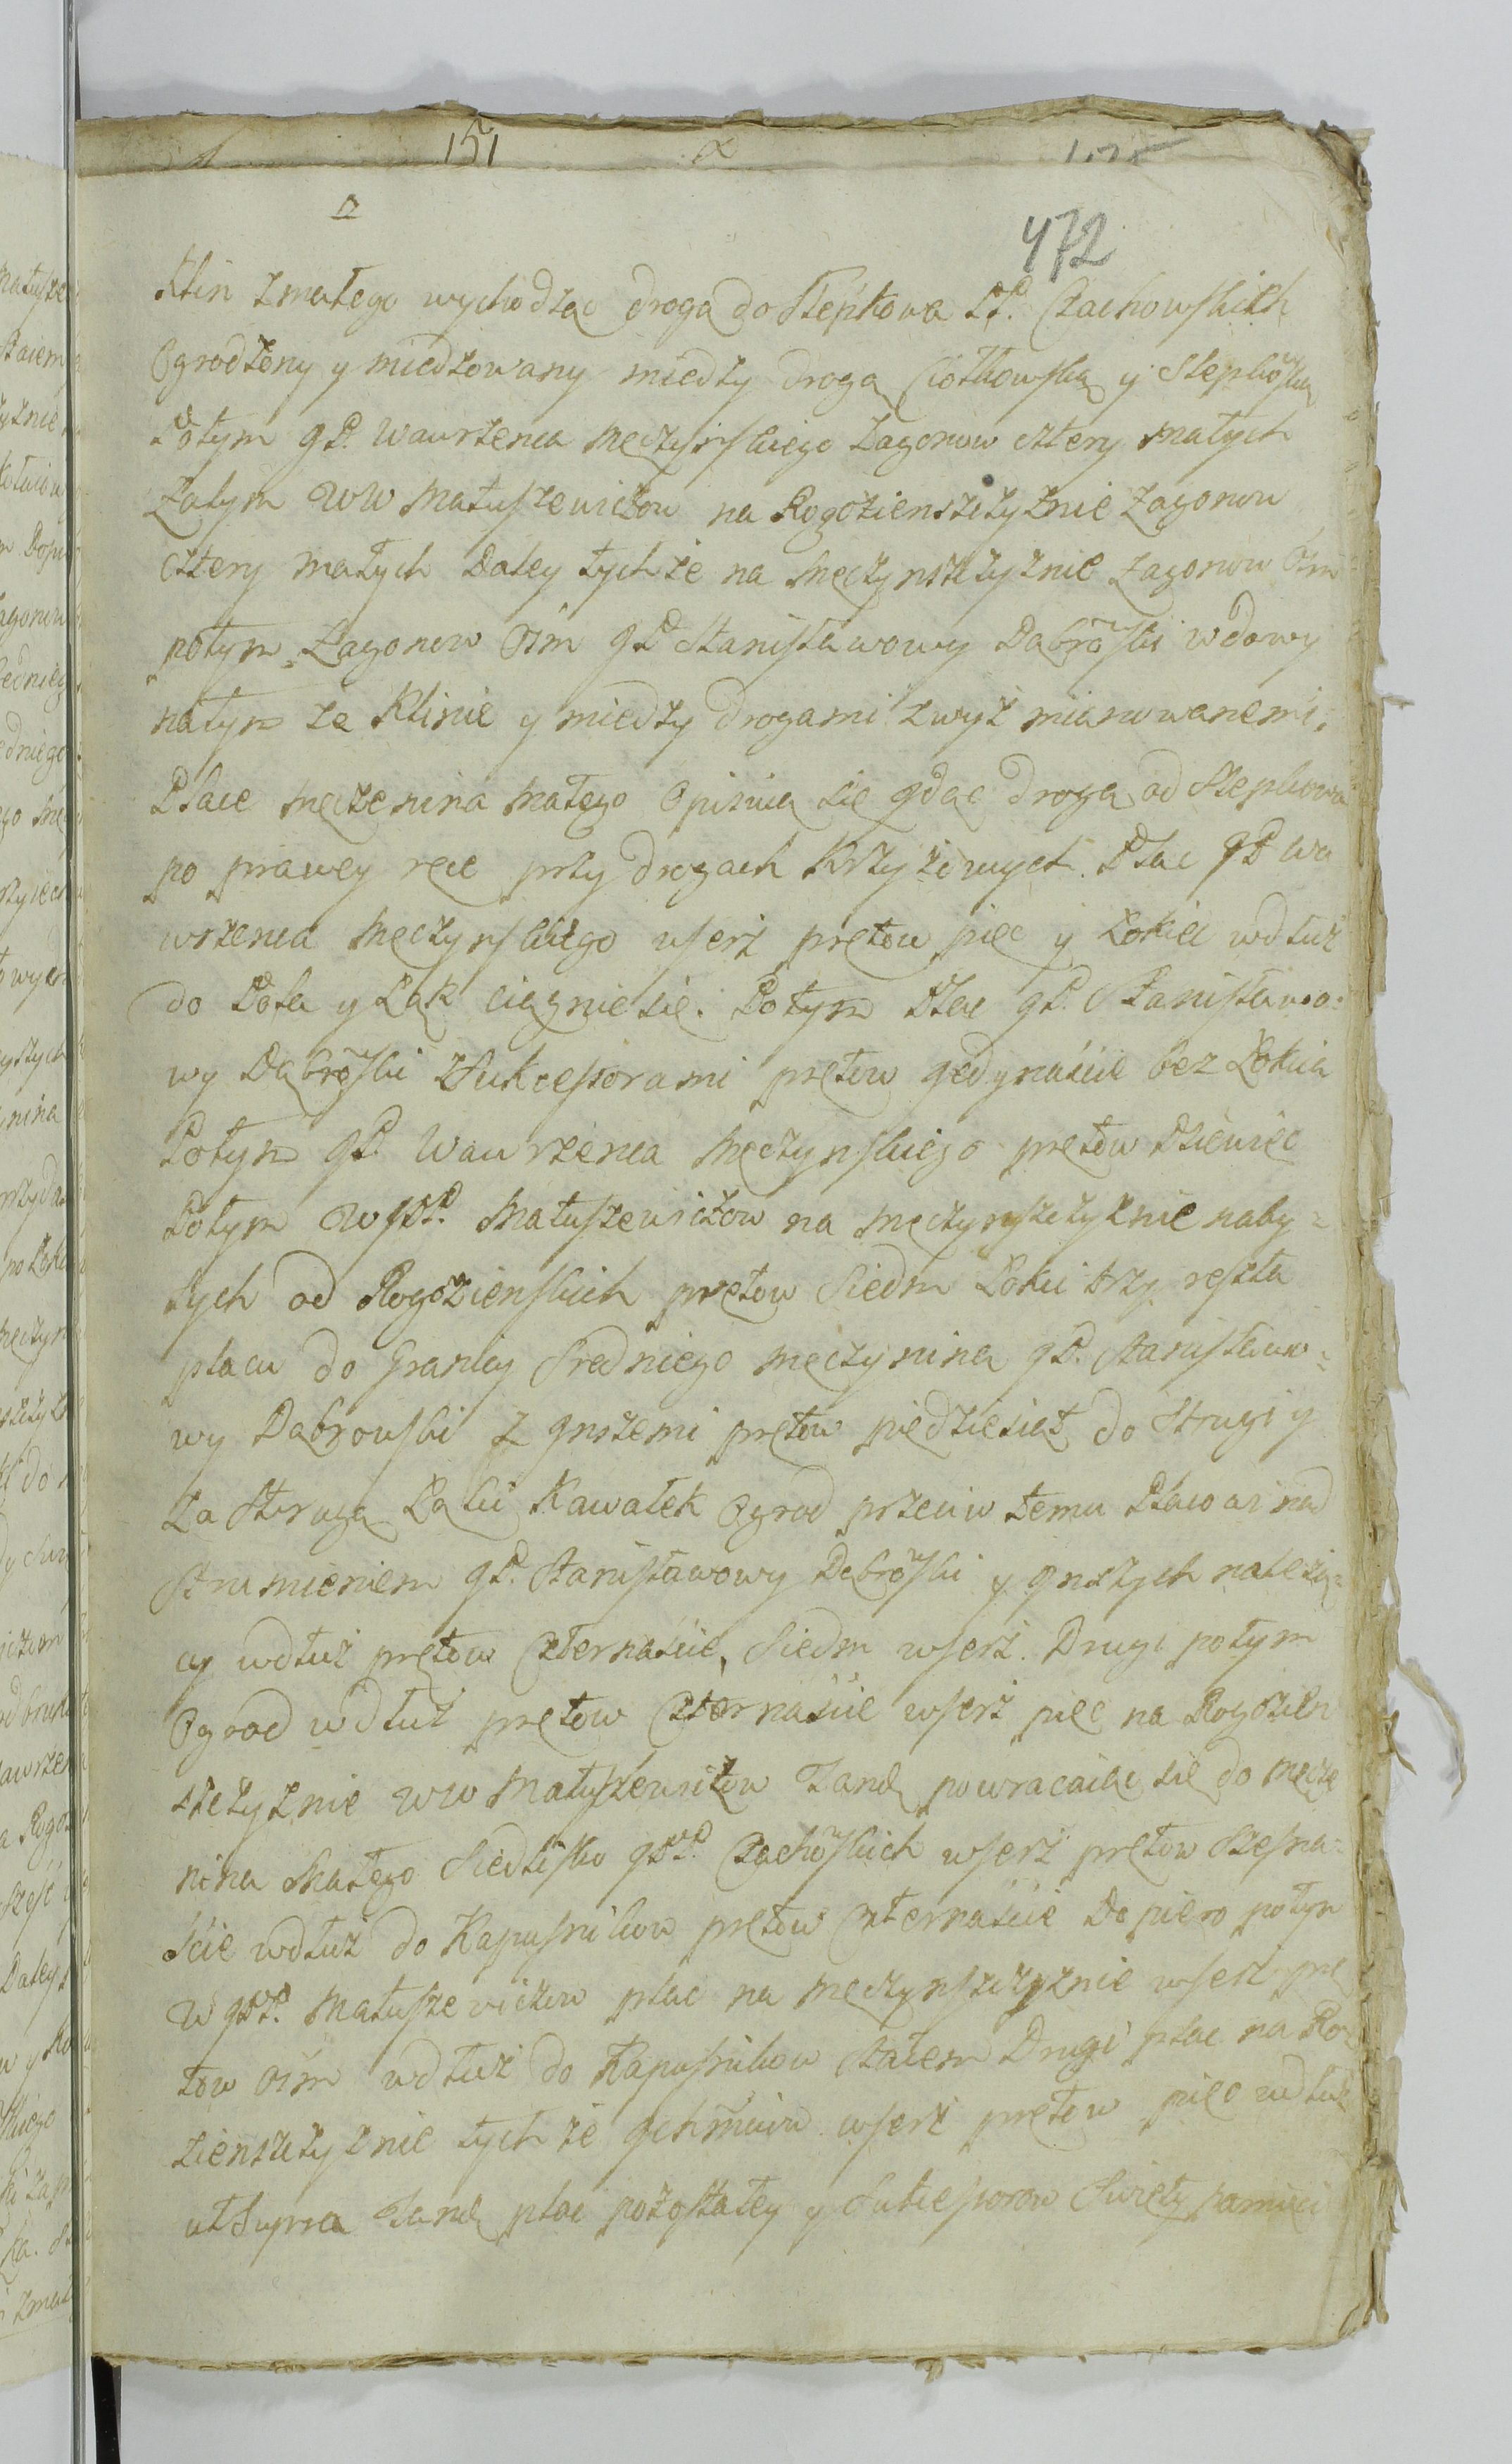 151
472
Klin zmałego wychodząc drogą do Stępkowa PP. Czachowskich
Ogrodzony y miedzowany miedzy drogą Ciołkowską y Stepkoską
Potym JP. Wawrzenca Męczyńskiego Zagonow cztery małych
Zatym WW Matuszewiczow na Rogozienszczyznie Zagonow
cztery małych Daley tychże na Męczynszczyznie Zagonow Ośm
potym Zagonow Ośm JP Stanisławowy Dąbroski wdowy
natym że Klinie y miedzy drogami zwyż mianowanemi.
Place Męczenina Małego Opisuią się Jdąc drogą od Stepkowa
po prawey ręce przy drogach Krzyżowych. Plac JP Wa
wrzenca Męczynskiego wserż prętow pięc y Łokiec wdłuż
do Pola y Łąk ciągnie się. Potym Plac JP. Stanisławo=
wy Dąbroski zSukcessorami prętow Jedynaście bez Łokcia
Potym JP. Wawrzenca Męczynskiego prętow Dziewięc
Potym WJPP. Matuszewiczow na Męczynszczyznie naby=
tych od Rogozienskich prętow Siedm Łokci trzy reszta
placu do Granicy Sredniego Męczynina JP. Stanisławo=
wy Dąbrowski z Jnszemi prętow piędziesiąt do Strugi y
za Strugą Łąki Kawałek Ogrod przeciw temu Placowi nad
Strumieniem JP. Stanisławowy Dąbroski y Jnszych należą=
cy wdłuż prętow Czternaście, Siedm wserż. Drugi potym
Ogrod wdłuż prętow Czternaście wserż pięc na Rogozien
szczyznie WW Matuszewiczow Zand powracaiąc się do Męcze
nina Małego Siedlisko JPP. Czachoskich wserż prętow Szesna=
ście wdłuż do Kapusnikow prętow czternaście Dopiero potym
WJPP. Matuszewiczow plac na Męczynszczyznie wserz prę
tow ośm wdłuż do Kapusnikow Staiem Drugi plac na Ro
zienszczyznie tychże Jchmciow wserż prętow pięc wdłuż
ut Supra Zand plac pozostałey y Sukcessorow Swięty pamięci